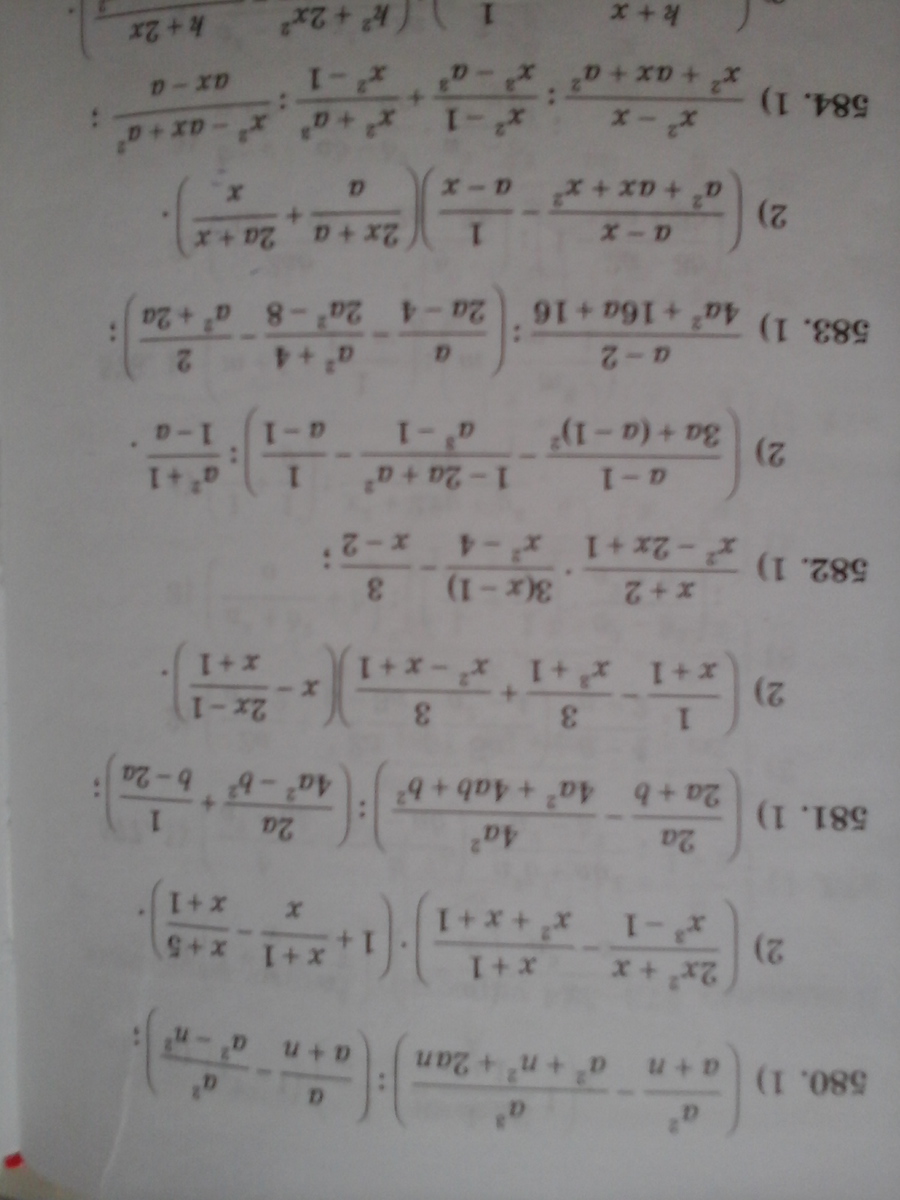 580. 1) (a²/(a + n) − a³/(a² + n² + 2an)) : (a/(a + n) − a²/(a² − n²));
2) ((2x² + x)/(x³ − 1) − (x + 1)/(x² + x + 1)) · (1 + (x + 1)/x − (x + 5)/(x + 1)).
581. 1) (2a/(2a + b) − 4a²/(4a² + 4ab + b²)) : (2a/(4a² − b²) + 1/(b − 2a));
2) (1/(x + 1) − 3/(x³ + 1) + 3/(x² − x + 1))(x − (2x − 1)/(x + 1)).
582. 1) (x + 2)/(x² − 2x + 1) · 3(x − 1)/(x² − 4) − 3/(x − 2);
2) ((a − 1)/(3a + (a − 1)²) − (1 − 2a + a²)/(a³ − 1) − 1/(a − 1)) : (a² + 1)/(1 − a).
583. 1) (a − 2)/(4a² + 16a + 16) : (a/(2a − 4) − (a² + 4)/(2a² − 8) − 2/(a² + 2a));
2) ((a − x)/(a² + ax + x²) − 1/(a − x))((2x + a)/a + (2a + x)/x).
584. 1) (x² − x)/(x² + ax + a²) : (x² − 1)/(x³ − a³) + (x³ + a³)/(x² − 1) : (x² − ax + a²)/(ax − a);
k + x 1 k² + 2x² k + 2x